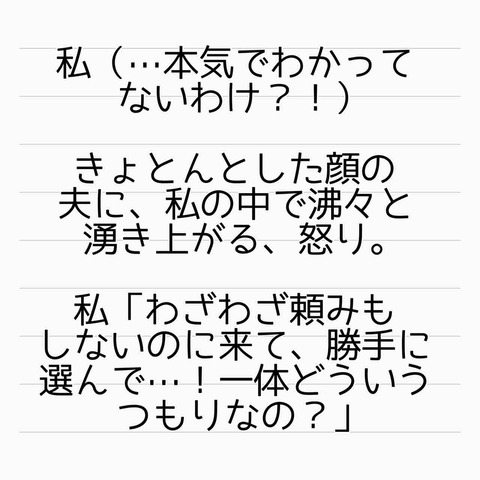 私（…本気でわかって
ないわけ？！）
きょとんとした顔の
夫に、私の中で沸々と
湧き上がる、怒り。
私「わざわざ頼みも
しないのに来て、勝手に
選んで…！一体どういう
つもりなの？」